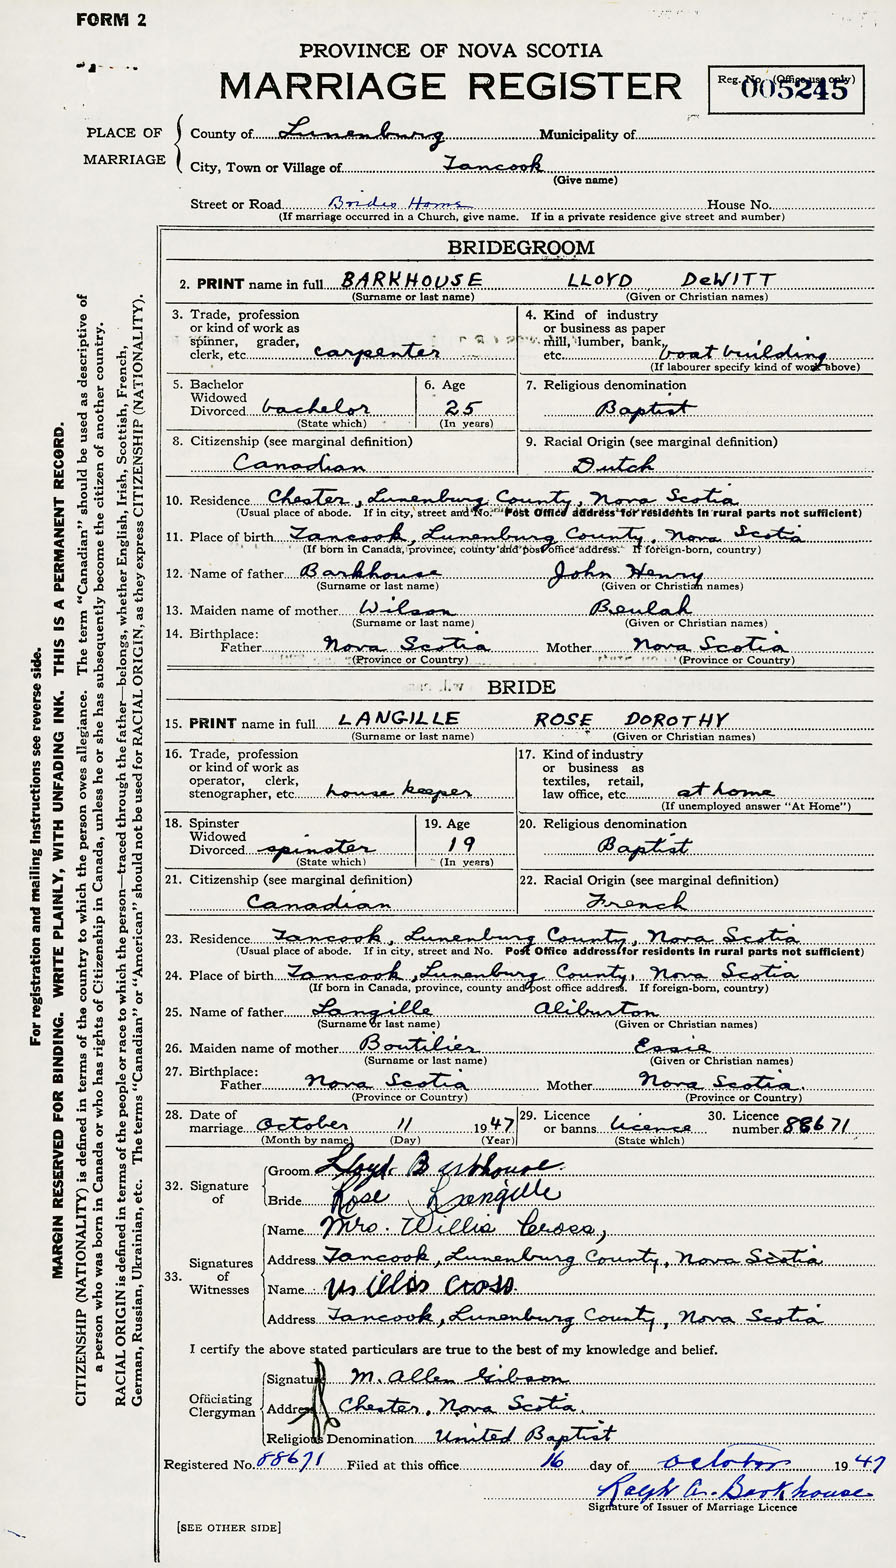 FORM 2
PROVINCE OF NOVA SCOTIA
MARRIAGE REGISTER
Reg. No. (Office use only)
005245
PLACE OF MARRIAGE
County of Lunenburg Municipality of
City, Town or Village of Tancook
(Give name)
Street or Road Brides Home House No.
(If marriage occurred in a Church, give name. If in a private residence give street and number)
BRIDEGROOM
2. PRINT name in full BARKHOUSE LLOYD DeWITT
(Surname or last name) (Given or Christian names)
3. Trade, profession
or kind of work as
spinner, grader,
clerk, etc. carpenter
4. Kind of industry
or business as paper
mill, lumber, bank,
etc. boat building
(If labourer specify kind of work above)
5. Bachelor
Widowed
Divorced bachelor
(State which)
6. Age
25
(In years)
7. Religious denomination
Baptist
8. Citizenship (see marginal definition)
Canadian
9. Racial Origin (see marginal definition)
Dutch
10. Residence Chester, Lunenburg County, Nova Scotia
(Usual place of abode. If in city, street and No. Post Office address for residents in rural parts not sufficient)
11. Place of birth Tancook, Lunenburg County, Nova Scotia
(If born in Canada, province, county and post office address. If foreign-born, country)
12. Name of father Barkhouse John Henry
(Surname or last name) (Given or Christian names)
13. Maiden name of mother Wilson Beulah
(Surname or last name) (Given or Christian names)
14. Birthplace:
Father Nova Scotia Mother Nova Scotia
(Province or Country) (Province or Country)
BRIDE
15. PRINT name in full LANGILLE ROSE DOROTHY
(Surname or last name) (Given or Christian names)
16. Trade, profession
or kind of work as
operator, clerk,
stenographer, etc. house keeper
17. Kind of industry
or business as
textiles, retail,
law office, etc. at home
(If unemployed answer "At Home")
18. Spinster
Widowed
Divorced spinster
(State which)
19. Age
19
(In years)
20. Religious denomination
Baptist
21. Citizenship (see marginal definition)
Canadian
22. Racial Origin (see marginal definition)
French
23. Residence Tancook, Lunenburg County, Nova Scotia
(Usual place of abode. If in city, street and No. Post Office address for residents in rural parts not sufficient)
24. Place of birth Tancook, Lunenburg County, Nova Scotia
(If born in Canada, province, county and post office address. If foreign-born, country)
25. Name of father Langille Aliburton
(Surname or last name) (Given or Christian names)
26. Maiden name of mother Boutilier Essie
(Surname or last name) (Given or Christian names)
27. Birthplace:
Father Nova Scotia Mother Nova Scotia.
(Province or Country) (Province or Country)
28. Date of
marriage October 11 1947
(Month by name) (Day) (Year)
29. Licence
or banns licence
(State which)
30. Licence
number 88671
32. Signature of
Groom Lloyd Barkhouse.
Bride Rose Langille
33. Signatures of Witnesses
Name Mrs. Willis Cross,
Address Tancook, Lunenburg County, Nova Scotia
Name Willis Cross.
Address Tancook, Lunenburg County, Nova Scotia
I certify the above stated particulars are true to the best of my knowledge and belief.
Officiating Clergyman
Signature M. Allen Gibson
Address Chester, Nova Scotia.
Religious Denomination United Baptist
Registered No. 88671 Filed at this office 16 day of October 1947
Ralph A. Barkhouse
Signature of Issuer of Marriage Licence
[SEE OTHER SIDE]
For registration and mailing instructions see reverse side.
MARGIN RESERVED FOR BINDING. WRITE PLAINLY, WITH UNFADING INK. THIS IS A PERMANENT RECORD.
CITIZENSHIP (NATIONALITY) is defined in terms of the country to which the person owes allegiance. The term "Canadian" should be used as descriptive of
a person who was born in Canada or who has rights of Citizenship in Canada, unless he or she has subsequently become the citizen of another country.
RACIAL ORIGIN is defined in terms of the people or race to which the person—traced through the father—belongs, whether English, Irish, Scottish, French,
German, Russian, Ukrainian, etc. The terms "Canadian" or "American" should not be used for RACIAL ORIGIN, as they express CITIZENSHIP (NATIONALITY).